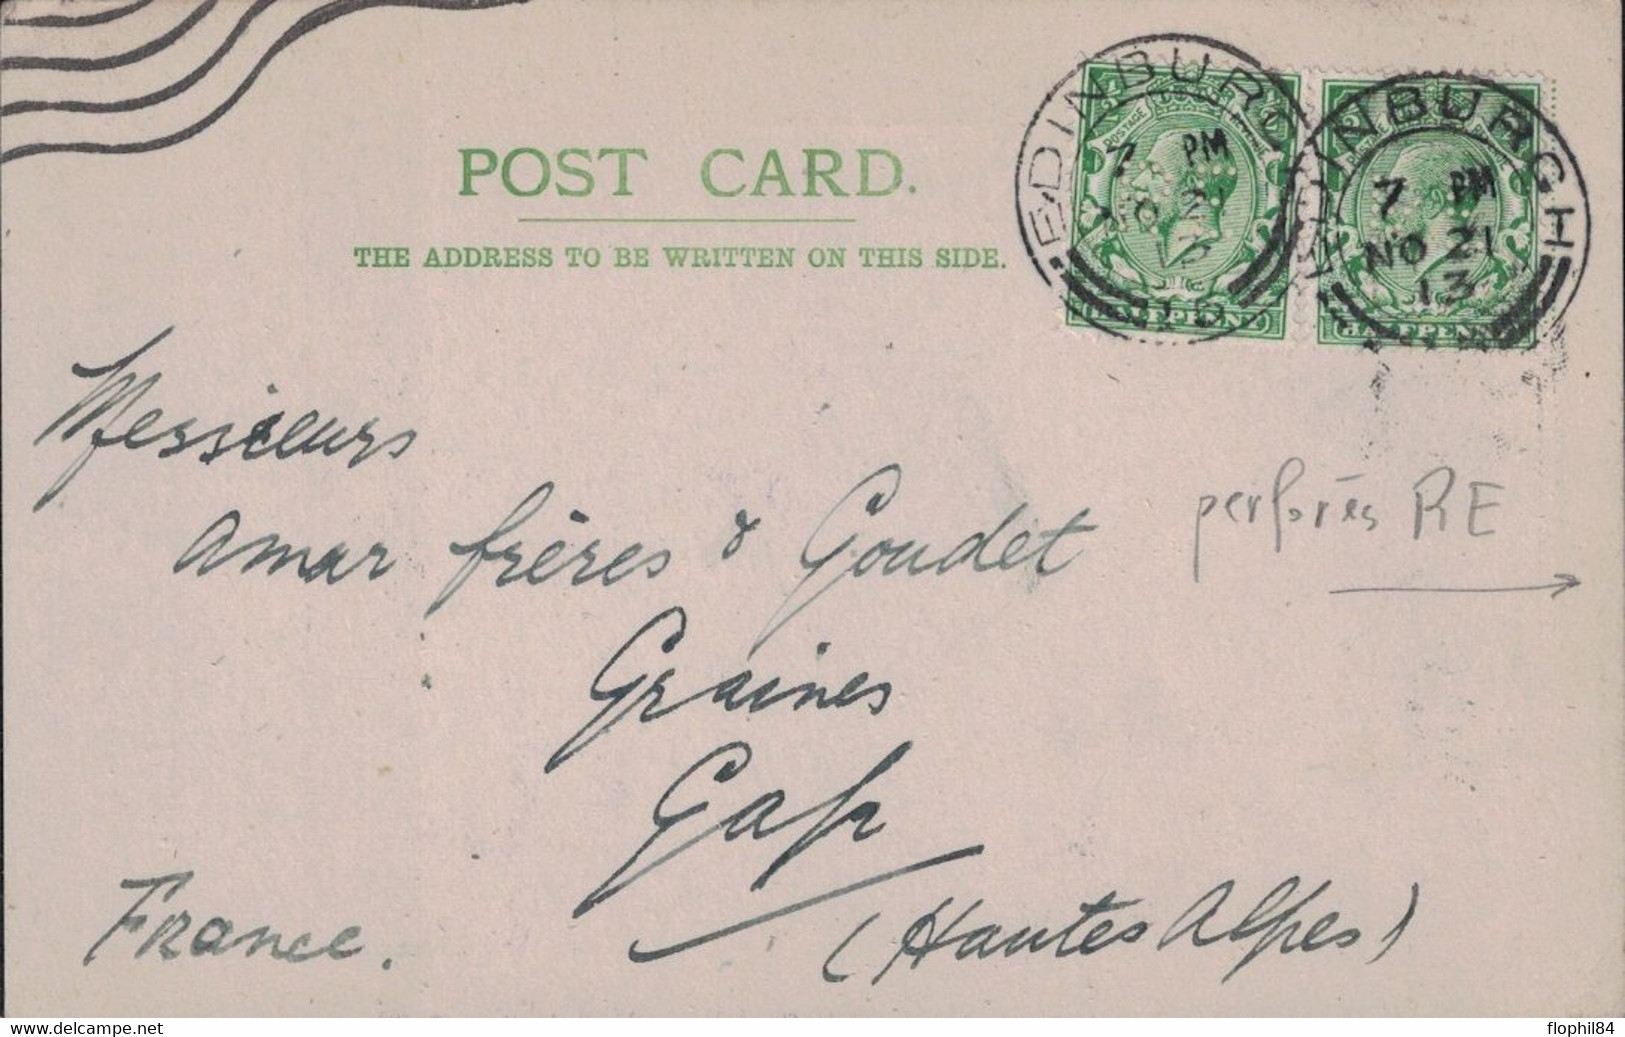 POST CARD.
THE ADDRESS TO BE WRITTEN ON THIS SIDE.
EDINBURGH
7 PM
NO 21
13
POSTAGE
HALFPENNY
EDINBURGH
7 PM
NO 21
13
HALFPENNY
Messieurs
Amar frères & Goudet
perforés RE
Graines
Gap
(Hautes Alpes)
France.
www.delcampe.net
flophil84